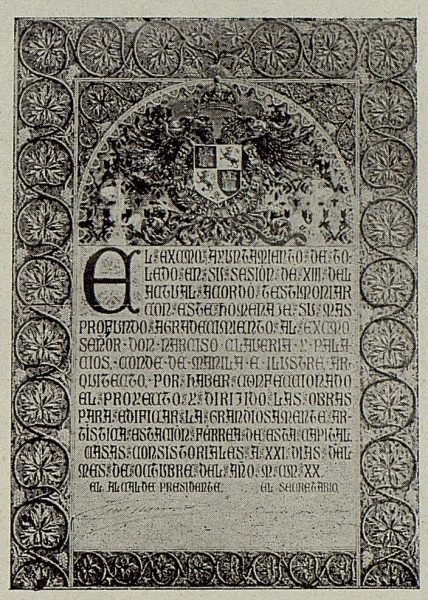 EL EXCMO AYUNTAMIENTO DE TO-
LEDO EN SU SESIÓN DE XIII DEL
ACTUAL ACORDÓ TESTIMONIAR
CON ESTE HOMENAJE SU MAS
PROFUNDO AGRADECIMIENTO AL EXCMO
SEÑOR DON NARCISO CLAVERIA Y PALA-
CIOS, CONDE DE MANILA E ILUSTRE AR-
QUITECTO, POR HABER CONFECCIONADO
EL PROYECTO Y DIRIGIDO LAS OBRAS
PARA EDIFICAR LA GRANDIOSAMENTE AR-
TÍSTICA ESTACIÓN FÉRREA DE ESTA CAPITAL
CASAS CONSISTORIALES A XXI DIAS DEL
MES DE OCTUBRE DEL AÑO M CM XX
EL ALCALDE PRESIDENTE. EL SECRETARIO.